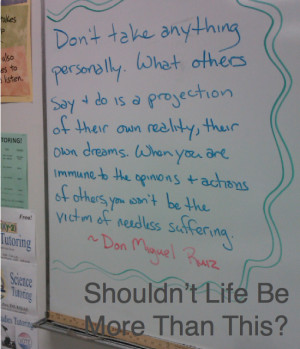 Don't take anything
personally. What others
say + do is a projection
of their own reality, their
own dreams. When you are
immune to the opinions + actions
of others, you won't be the
victim of needless suffering.
~Don Miguel Ruiz
Shouldn't Life Be
More Than This?
takes
also
es to
listen.
TORING!
Free!
Tutoring
Science
Tutoring
Tutoring